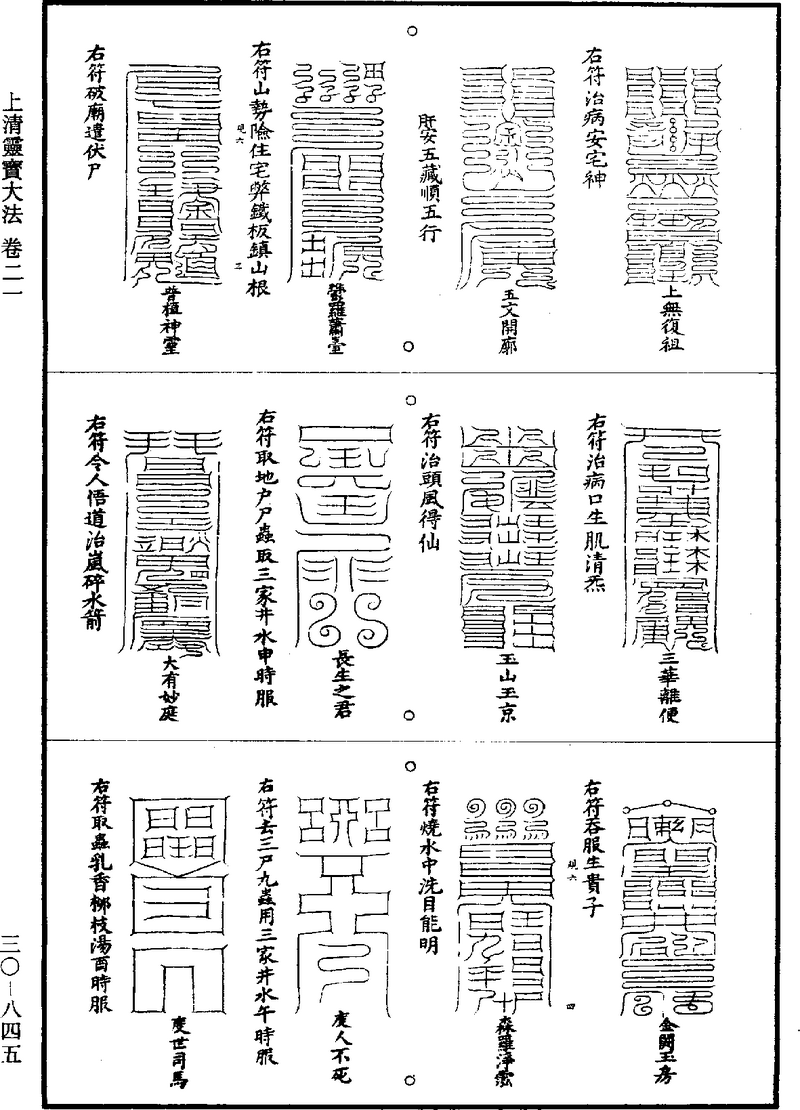 上無復祖
右符治病安宅神
五文開廓
肝安五藏順五行
鬱羅蕭臺
右符山勢險住宅弊鐵板鎮山根
規六
三
普植神靈
右符破廟遣伏尸
三華離便
右符治病口生肌清炁
玉山玉京
右符治頭風得仙
長生之君
右符取地户尸蟲取三家井水申時服
大有妙庭
右符令人悟道治嵐碎水箭
金闕玉房
右符吞服生貴子
規六
四
森羅淨泓
右符燒水中洗目能明
度人不死
右符去三尸九蟲用三家井水午時服
度世司馬
右符取蟲乳香柳枝湯酉時服
上清靈寶大法 卷二一
三〇－八四五